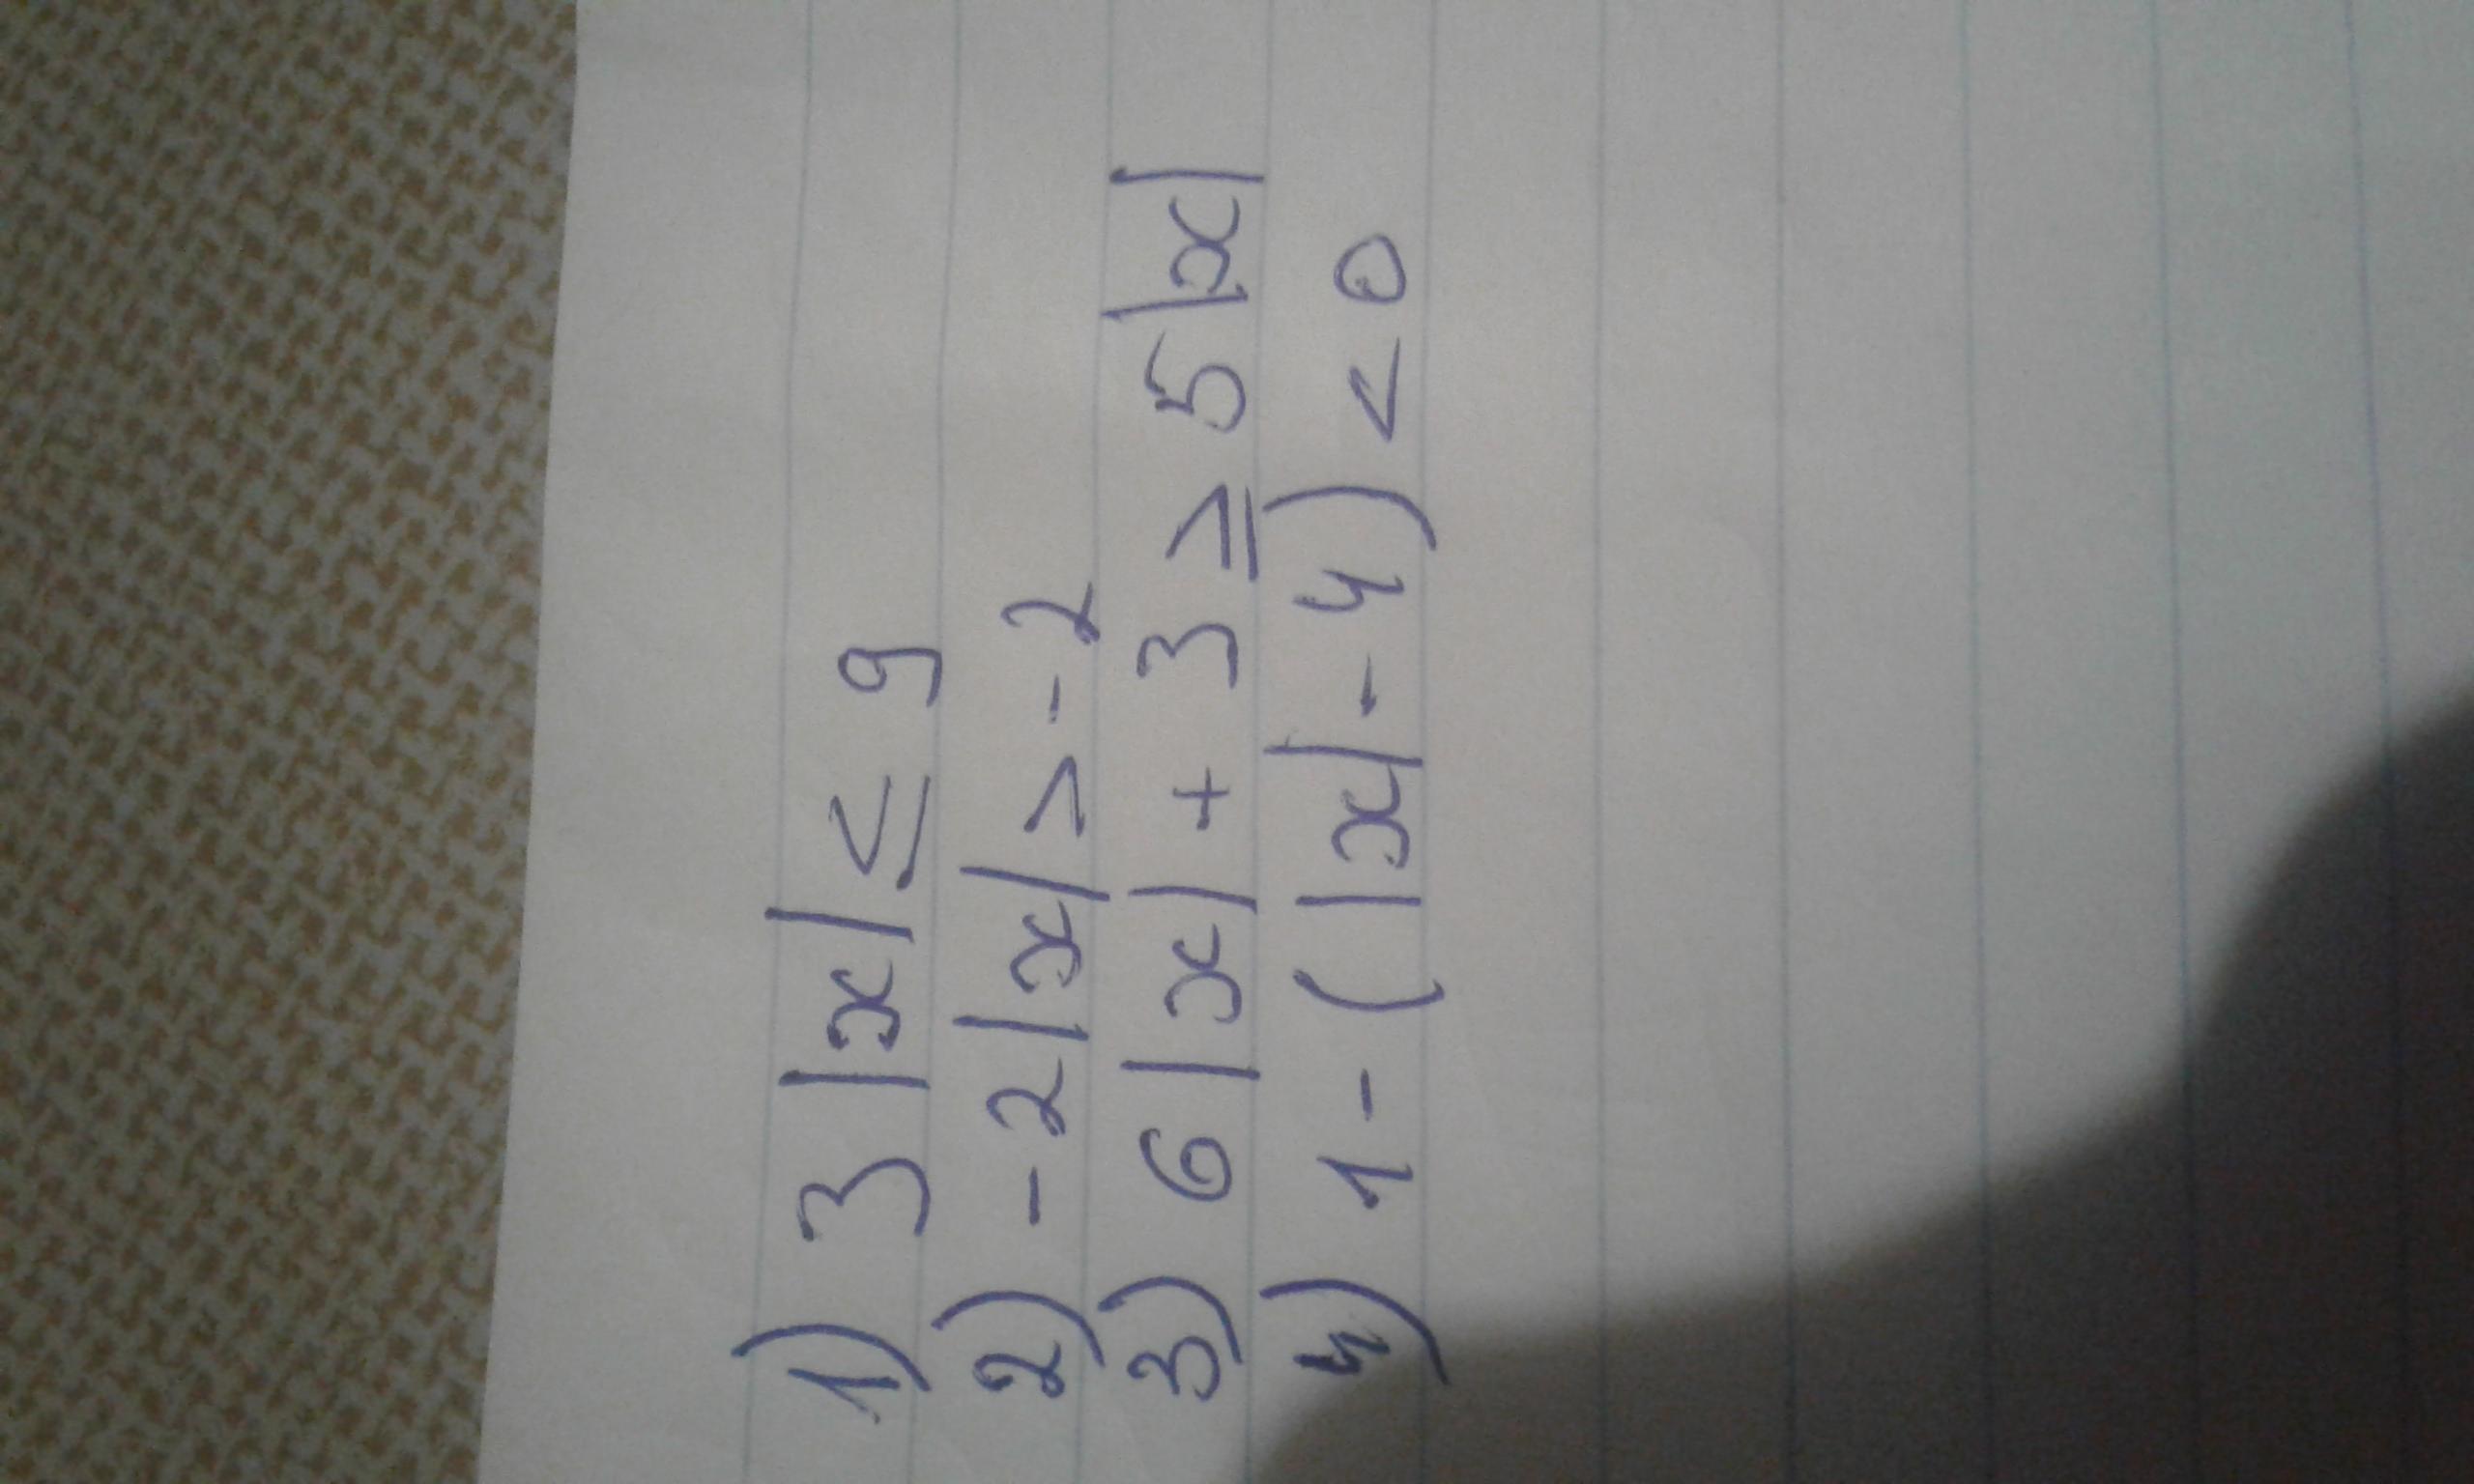 1) 3|x| ≤ 9
2) -2|x| > -2
3) 6|x| + 3 ≥ 5|x|
4) 1 - (|x| - 4) < 0